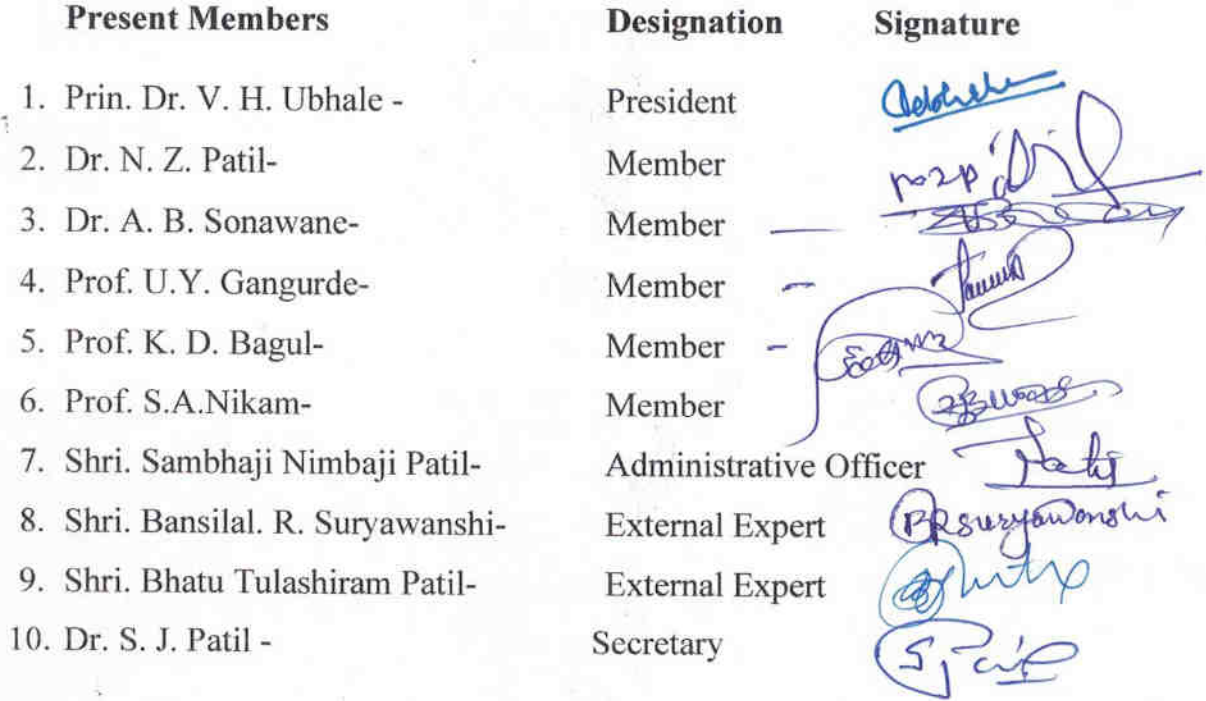 Present Members Designation Signature
1. Prin. Dr. V. H. Ubhale - President
2. Dr. N. Z. Patil- Member
3. Dr. A. B. Sonawane- Member
4. Prof. U.Y. Gangurde- Member -
5. Prof. K. D. Bagul- Member -
6. Prof. S.A.Nikam- Member
7. Shri. Sambhaji Nimbaji Patil- Administrative Officer
8. Shri. Bansilal. R. Suryawanshi- External Expert BRSuryawanshi
9. Shri. Bhatu Tulashiram Patil- External Expert
10. Dr. S. J. Patil - Secretary